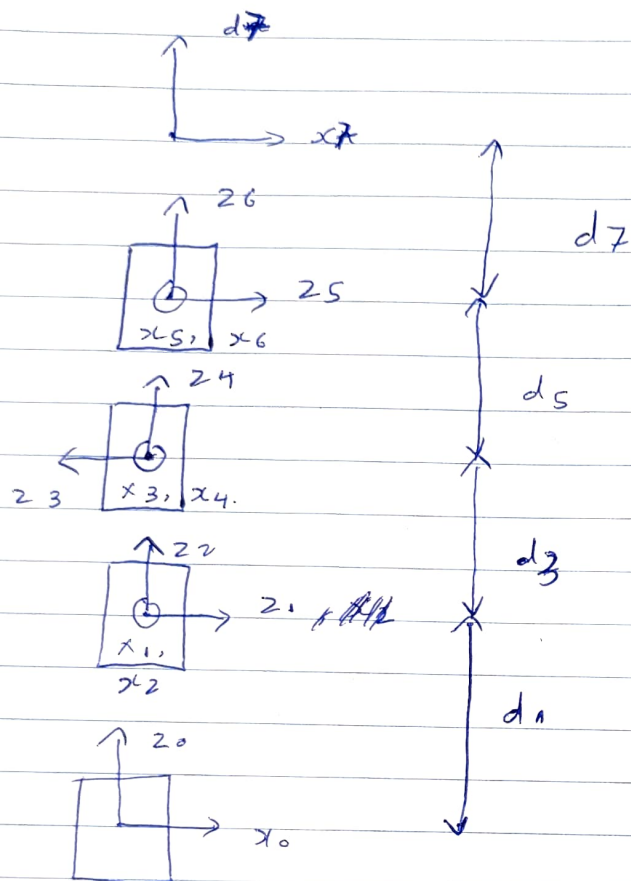 d7
x7
z6
d7
z5
x5, x6
z4
d5
z3
x3, x4.
z2
d3
z1
x1,
x2
d1
z0
x0